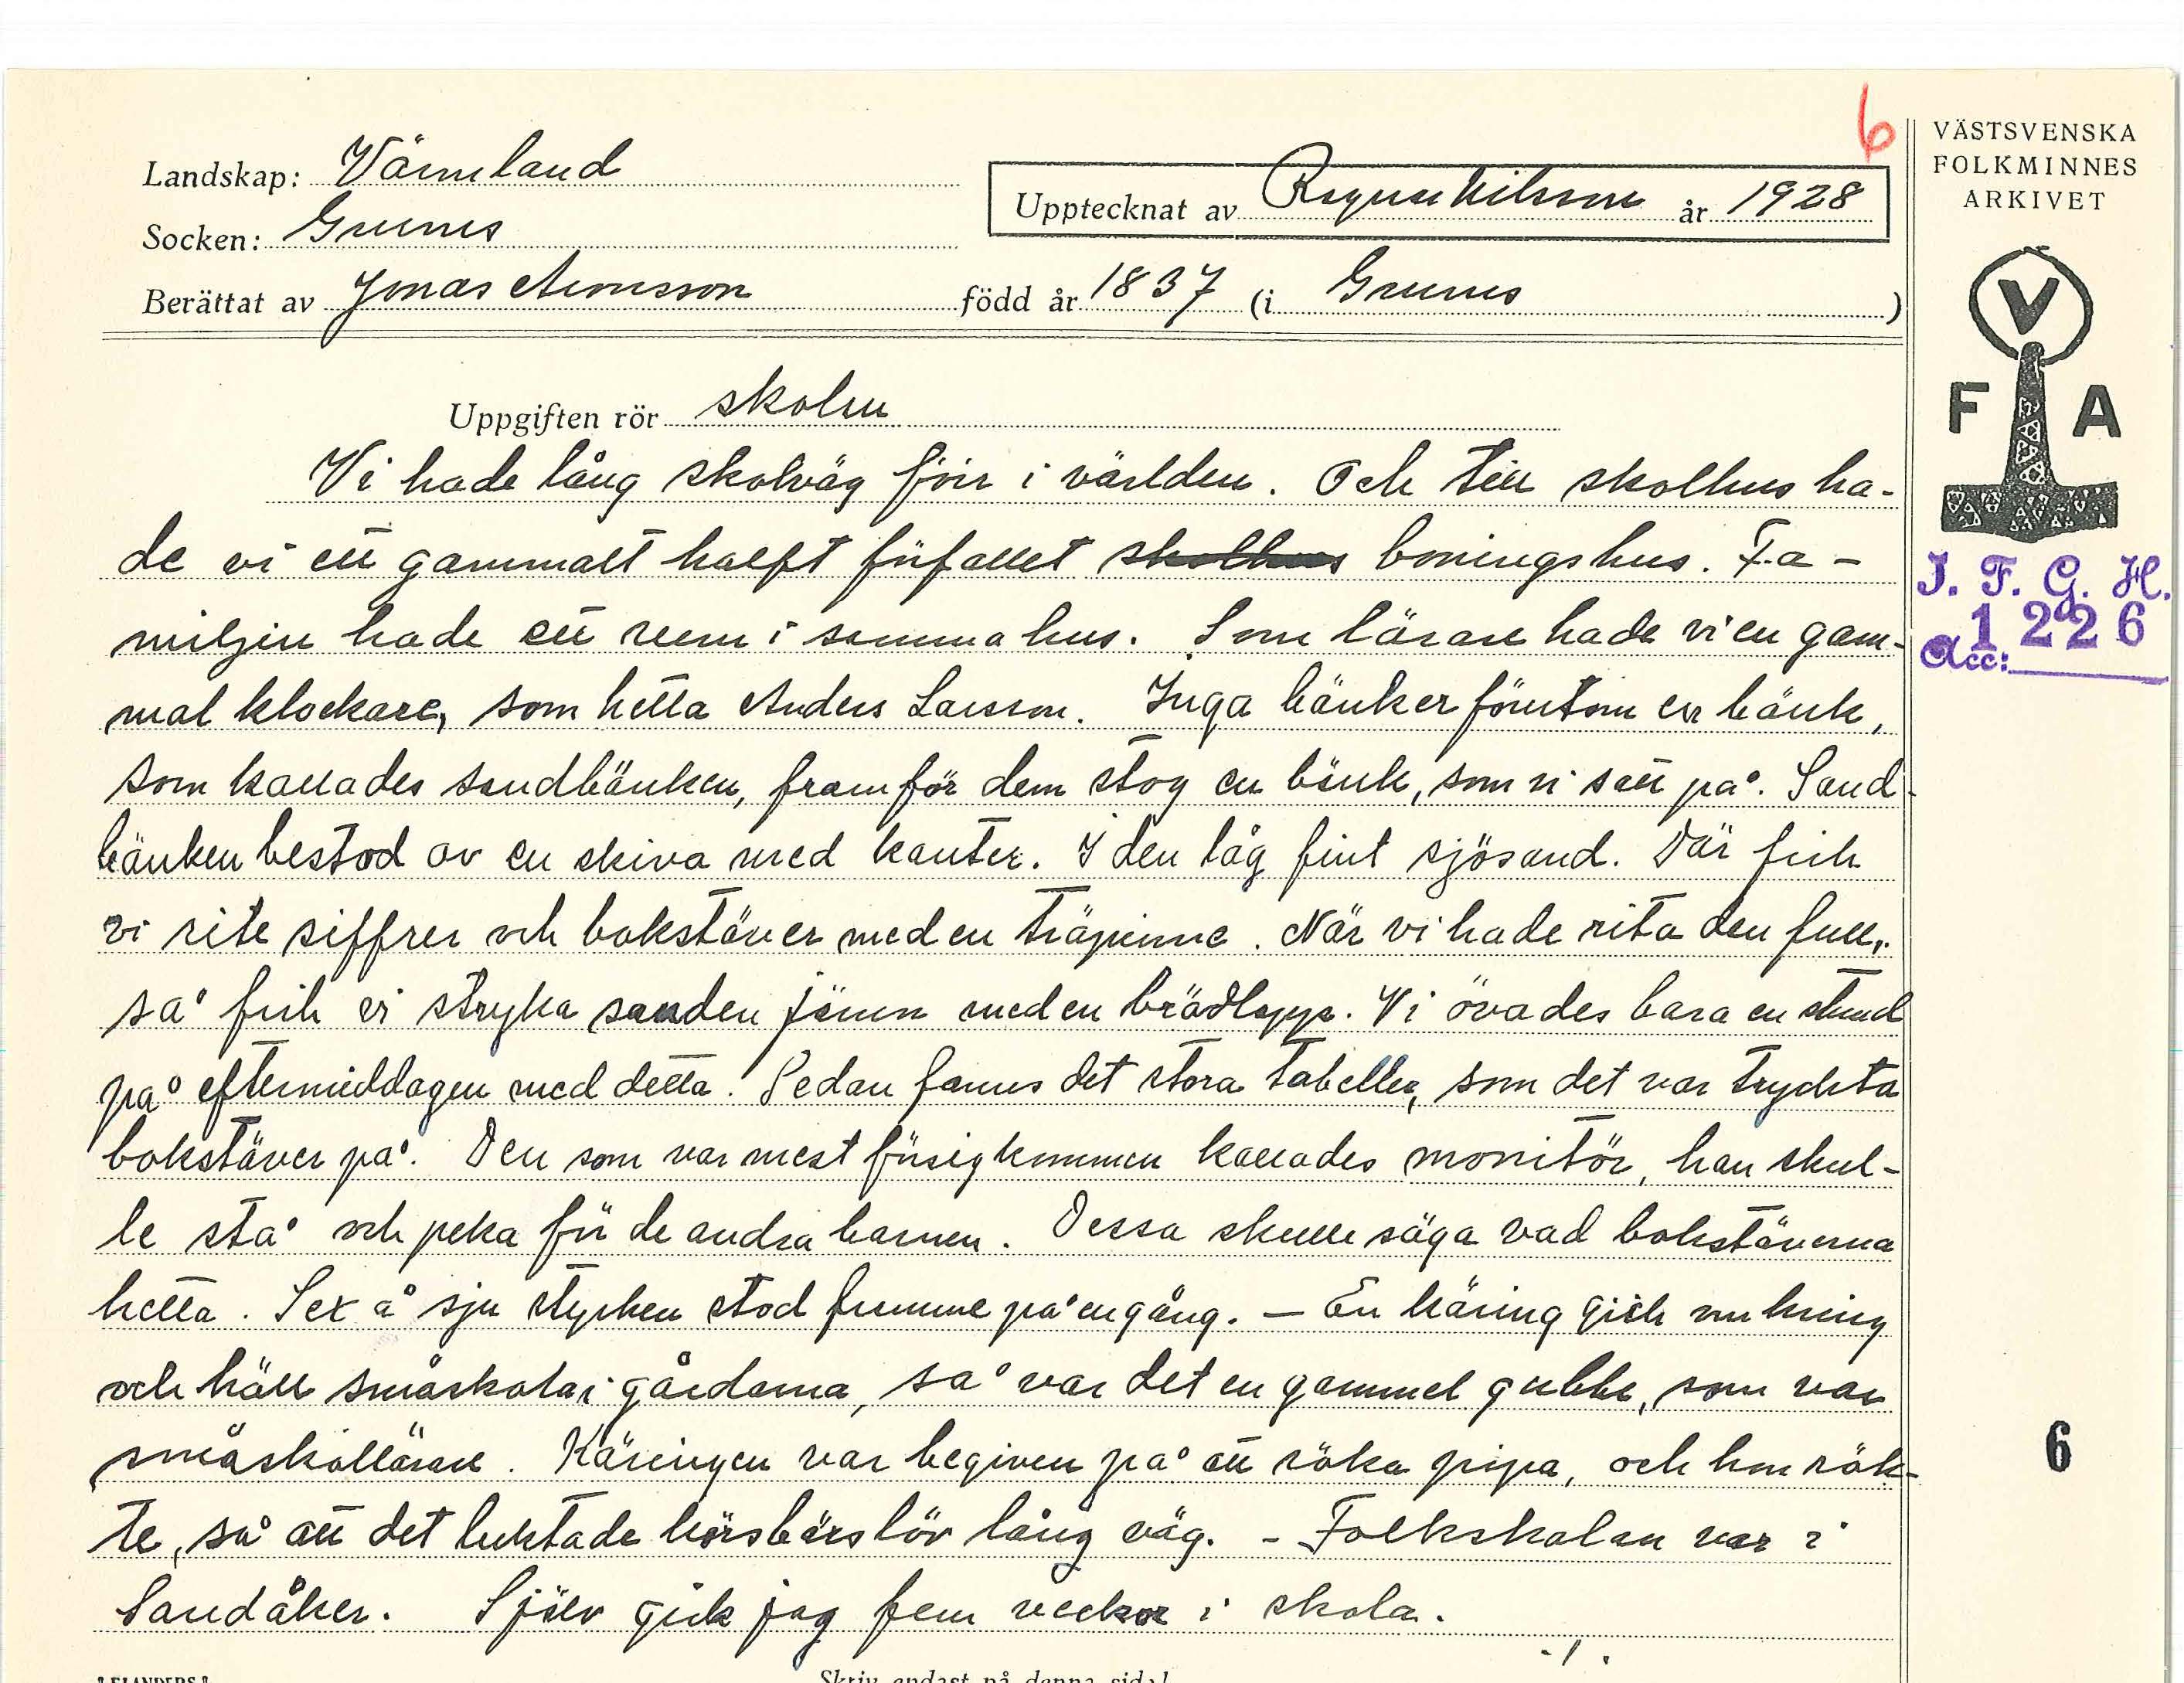 6
VÄSTSVENSKA
FOLKMINNES
ARKIVET
Landskap: Värmland
Upptecknat av Ragnar Nilsson år 1928
Socken: Grums
Berättat av Jonas Aronsson född år 1837 (i Grums )
V
F A
I. F. G. H.
Acc: 1226
Uppgiften rör skolan
Vi hade lång skolväg förr i världen. Och till skolhus ha-
de vi ett gammalt halft förfallet skolhus boningshus. Fa-
miljen hade ett rum i samma hus. Som lärare hade vi en gam-
mal klockare, som hetta Anders Larsson. Inga bänker förutom en bänk,
som kallades sandbänken, framför dem stog en bänk, som vi satt på. Sand-
bänken bestod av en skiva med kanter. I den låg fint sjösand. Där fick
vi rite siffrer och bokstäver med en träpinne. När vi hade rita den full,
så fick vi stryka sanden jämn med en brädlapp. Vi övades bara en stund
på eftermiddagen med detta. Sedan fanns det stora tabeller, som det var tryckta
bokstäver på. Den som var mest försigkommen kallades monitör, han skul-
le stå och peka för de andra barnen. Dessa skulle säga vad bokstäverna
hetta. Sex å sju stycken stod framme på en gång. — En käring gick omkring
och höll småskola i gårdarna, så var det en gammel gubbe, som var
småskollärare. Käringen var begiven på att röka pipa, och hon rök-
te, så att det luktade körsbärslöv lång väg. - Folkskolan var i
Sandåker. Själv gick jag fem veckor i skola.
./.
6
"ELANDERS"
Skriv endast på denna sida!